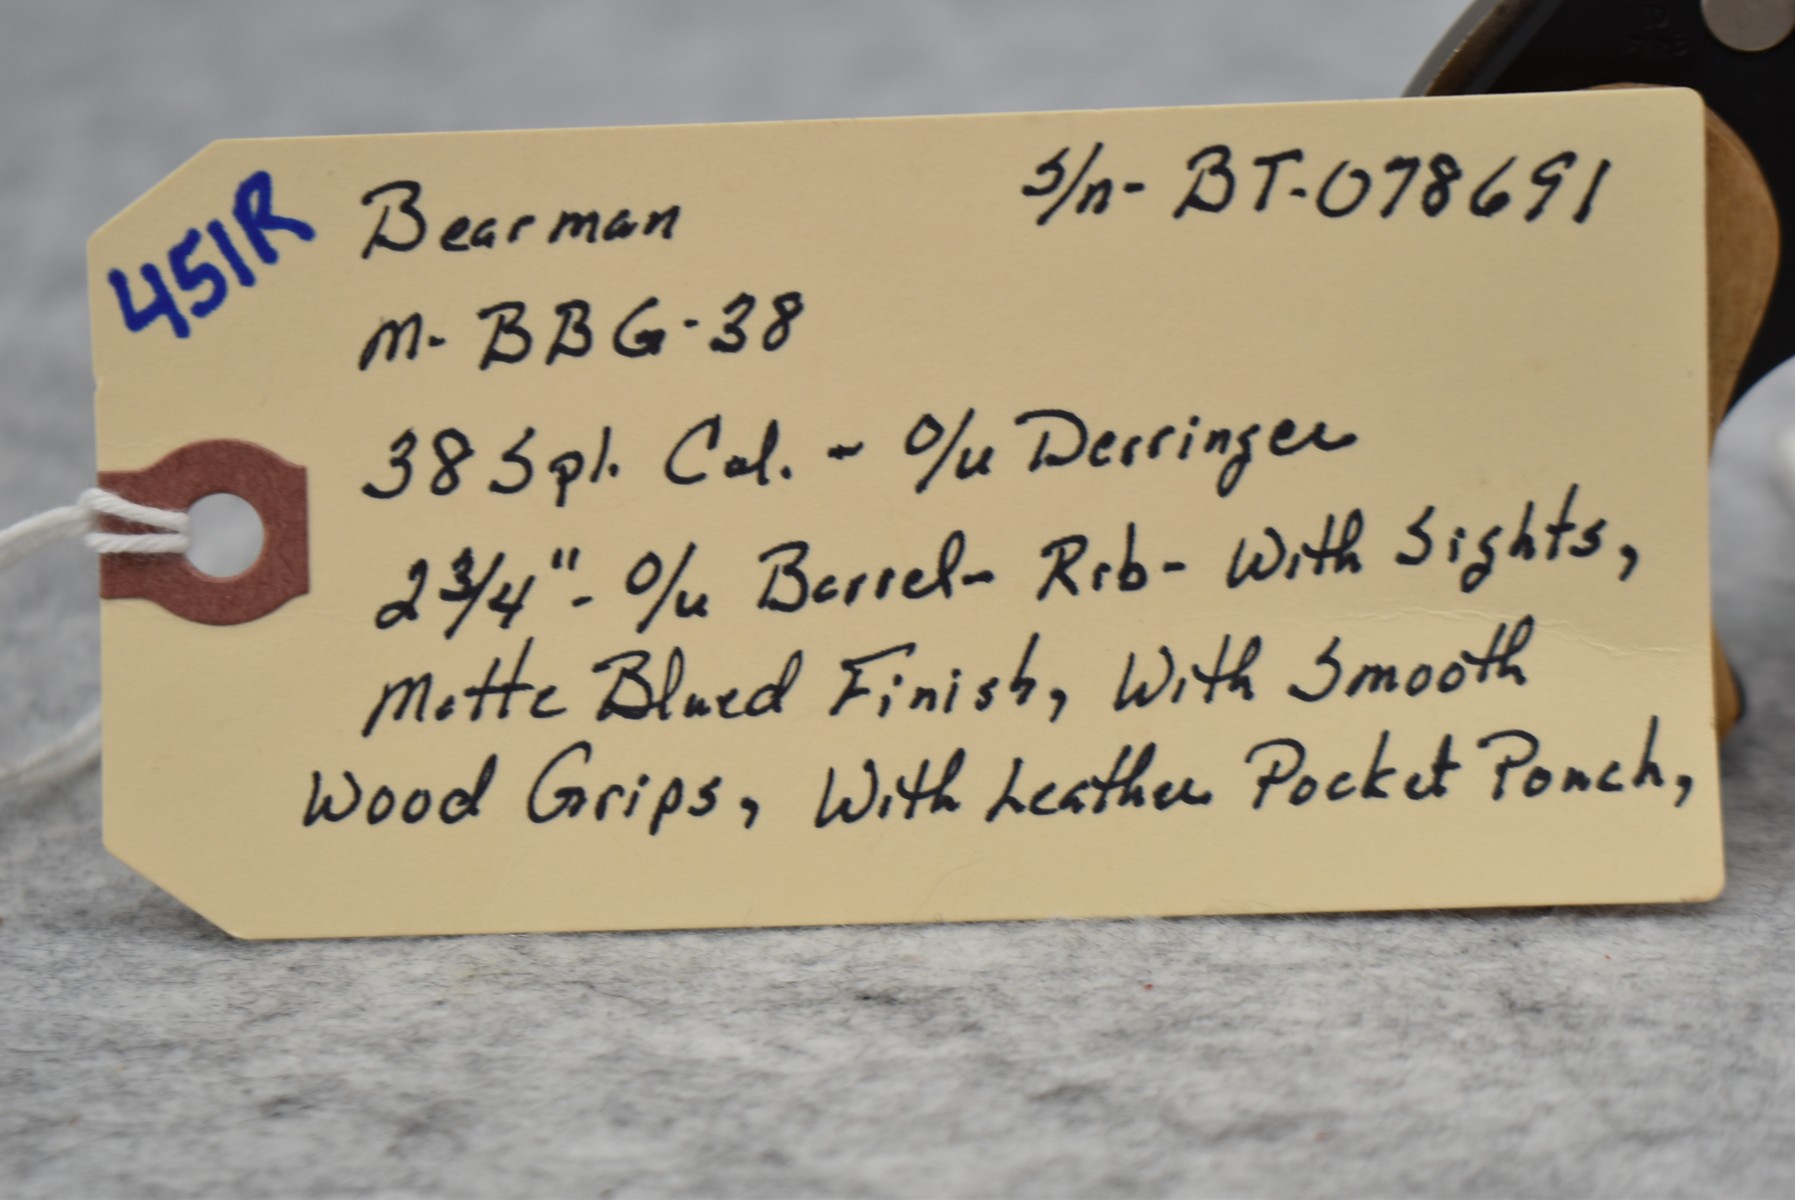 451R
Bearman s/n- BT-078691
M- BBG-38
38 Spl. Cal. - O/u Derringer
2 3/4" - O/u Barrel- Rib- With Sights,
Matte Blued Finish, With Smooth
Wood Grips, With Leather Pocket Pouch,